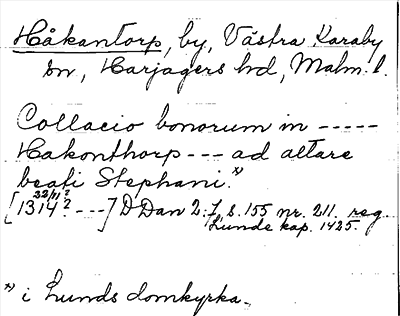 Håkantorp, by, Västra Karaby
sn, Harjagers hd, Malm. l.
Collacio bonorum in -----
Hakonthorp --- ad altare
beati Stephani.*)
[1314? 22/11? ---] D Dan 2:7, s. 155 nr. 211. reg.
Lunde kap. 1425.
*) i Lunds domkyrka.